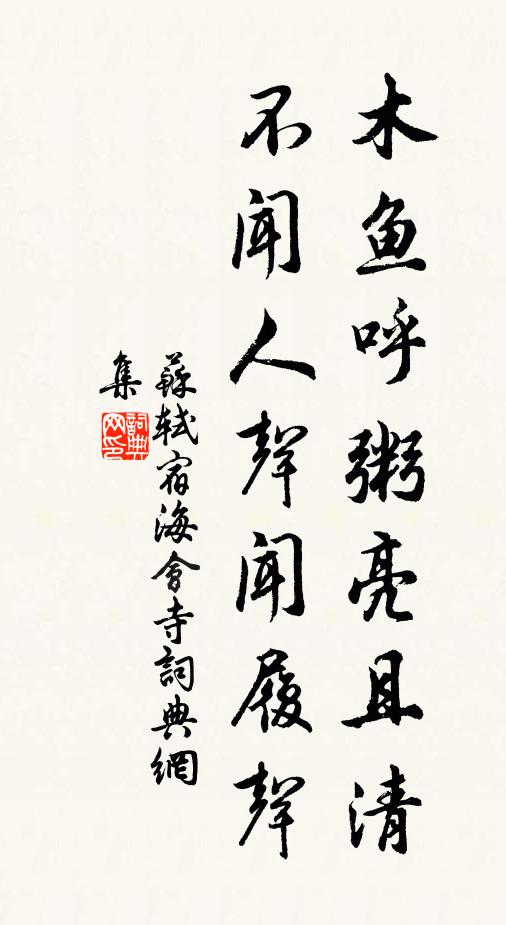 木鱼呼粥亮且清
不闻人聲闻履聲
蘇軾宿海會寺詞典網
集
詞典
网印